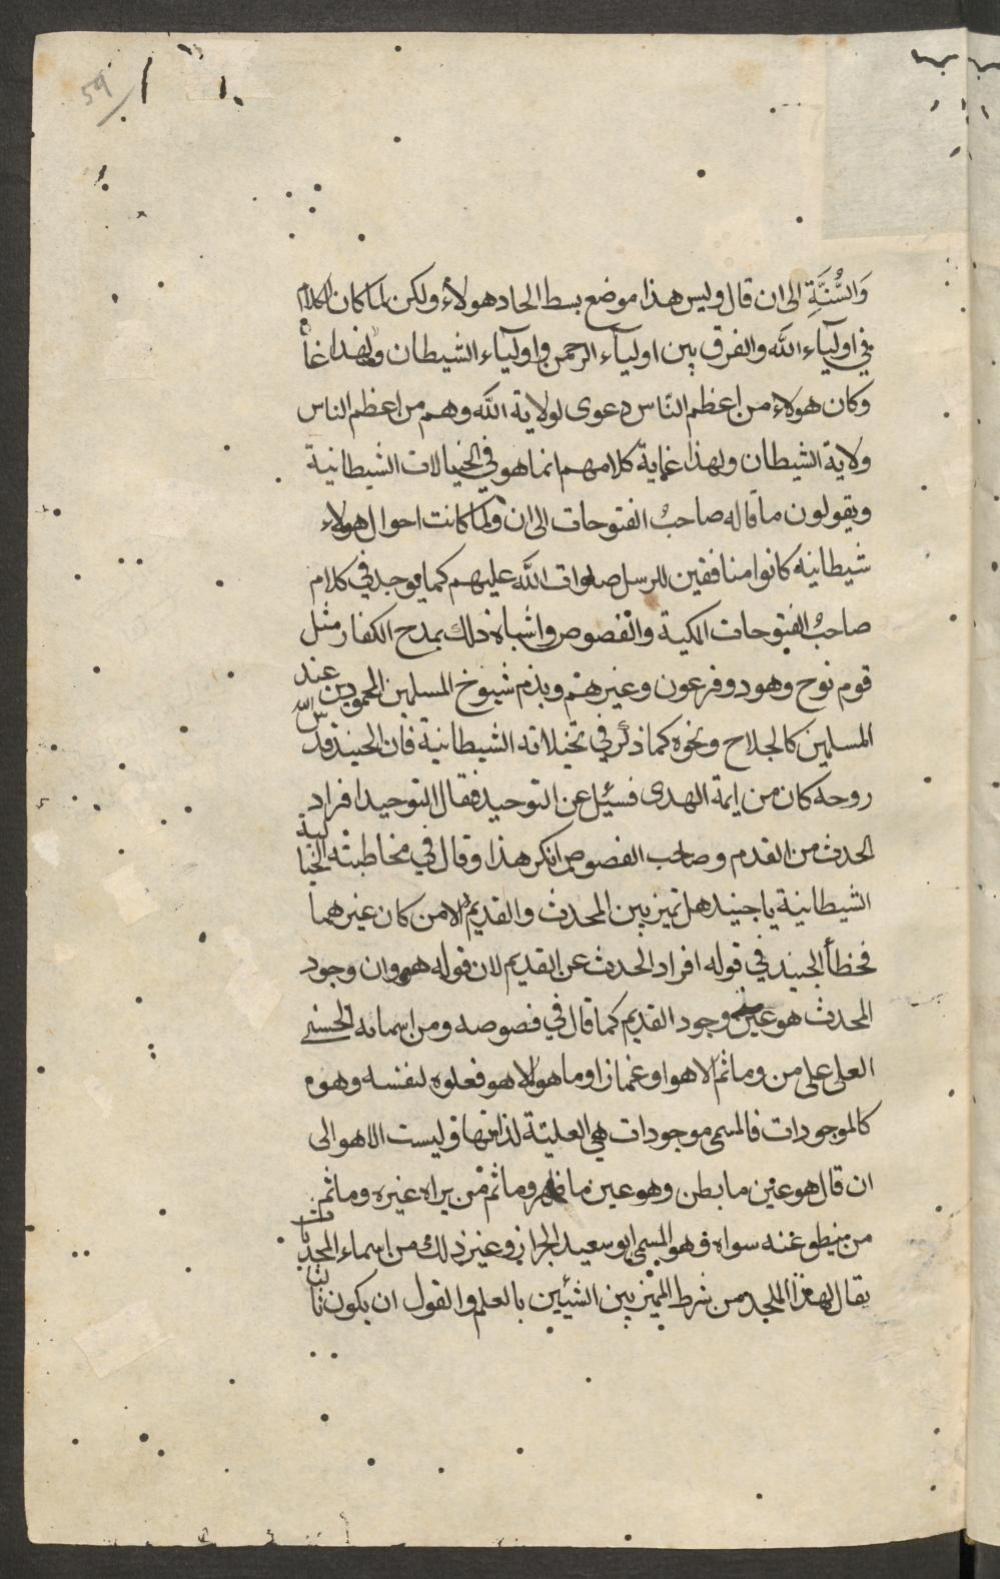 59
وَالسُّنَّةِ الى ان قال وليس هذا موضع بسط الحاد هولاء ولكن لما كان الكلام
في اوليآء الله والفرق بين اوليآء الرحمن واوليآء الشيطان
وكان هولاء من اعظم الناس دعوى لولاية الله وهم من اعظم الناس
ولاية الشيطان ولهذا غاية كلامهم انما هو في الخيالات الشيطانية
ويقولون ما قاله صاحب الفتوحات الى ان ولما كانت احوال هولاء
شيطانية كانوا منافقين للرسل صلوات الله عليهم كما يوجد في كلام
صاحب الفتوحات المكية والفصوص واشباه ذلك بمدح الكفار مثل
قوم نوح وهود وفرعون وغيرهم ويذم شيوخ المسلمين المحمودين عند
المسلمين كالجلاح ونحوه كما ذكر في تخيلاته الشيطانية فان الجنيد قدس الله
روحه كان من ايمة الهدى فسئل عن التوحيد فقال التوحيد افراد
الحدث من القدم وصاحب الفصوص انكر هذا وقال في مخاطبته الخيالية
الشيطانية يا جنيد هل تميز بين المحدث والقديم الا من كان غيرهما
فخطأ الجنيد في قوله افراد الحدث عن القديم لان قوله هو وان وجود
المحدث هو عين وجود القديم كما قال في فصوصه ومن اسمائه الحسنى
العلى على من وما ثم الا هو او عماذا وما هو الا هو فعلوه لنفسه وهو م
كالموجودات فالمسمى موجودات هي العلية لذاتها وليست الا هو الى
ان قال هو عين ما بطن وهو عين ما ظهر وما ثم من يراه غيره وما ثم
من ينطق عنه سواه فهو المسمى ابو سعيد الخراز وغير ذلك من اسماء المحدثات
يقال لهذا الملحد من شرط المميز بين الشيئين بالعلم والقول ان يكون ثالثا